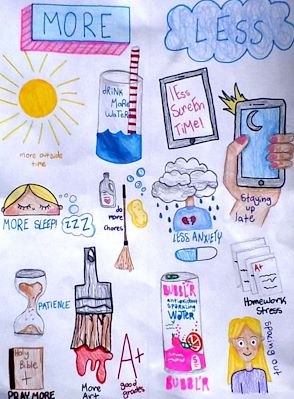 MORE
LESS
DRINK
MORE
WATER
LESS
SCREEN
TIME!
more outside
time
Staying
up
late
MORE SLEEP!
ZZZ
do
more
chores
LESS ANXIETY
PATIENCE
A+
Homework
Stress
BUBBL'R
antioxidant
SPARKLING
WATER
BUBBL'R
Spacing out
Holy
Bible
PRAY MORE
More
Art
A+
good
grades